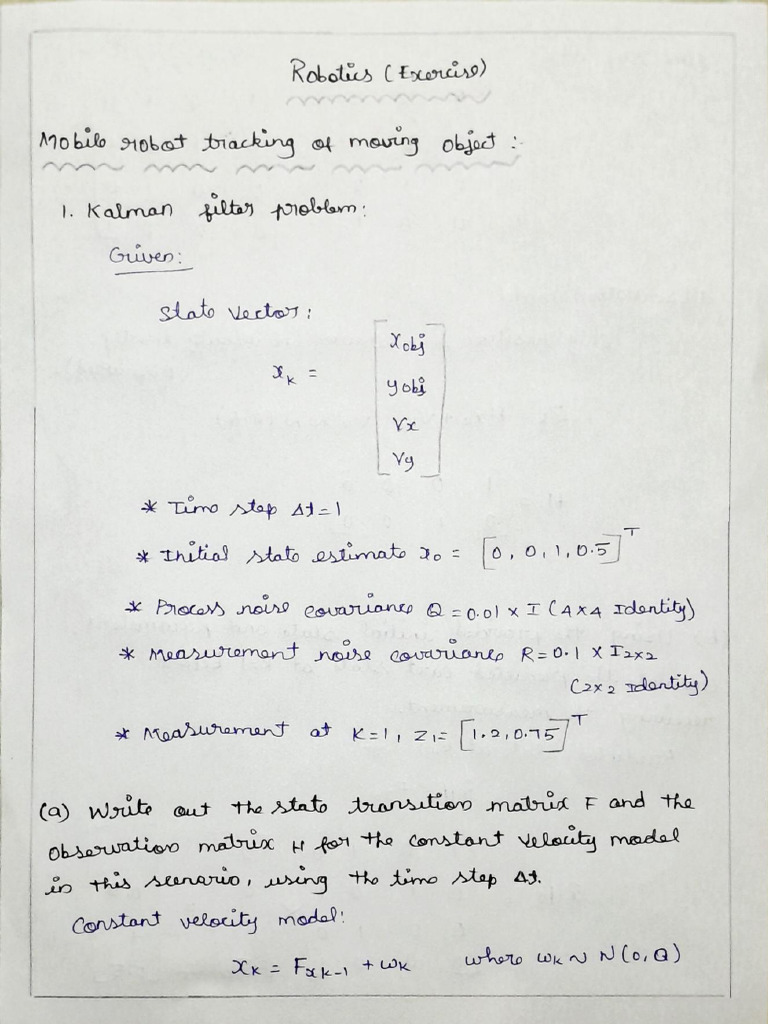 Robotics (Exercise)
Mobile robot tracking of moving object :-
1. Kalman filter problem:
Given:
State vector:
x_k = [x_obj
y_obj
Vx
Vy]
* Time step Δt=1
* Initial state estimate x_0 = [0, 0, 1, 0.5]^T
* Process noise covariance Q = 0.01 x I (4x4 Identity)
* Measurement noise covariance R = 0.1 x I_2x2
(2x2 Identity)
* Measurement at K=1, z_1= [1.2, 0.75]^T
(a) Write out the state transition matrix F and the
observation matrix H for the constant velocity model
in this scenario, using the time step Δt.
Constant velocity model:
x_k = F x_k-1 + w_k where w_k ~ N(0,Q)